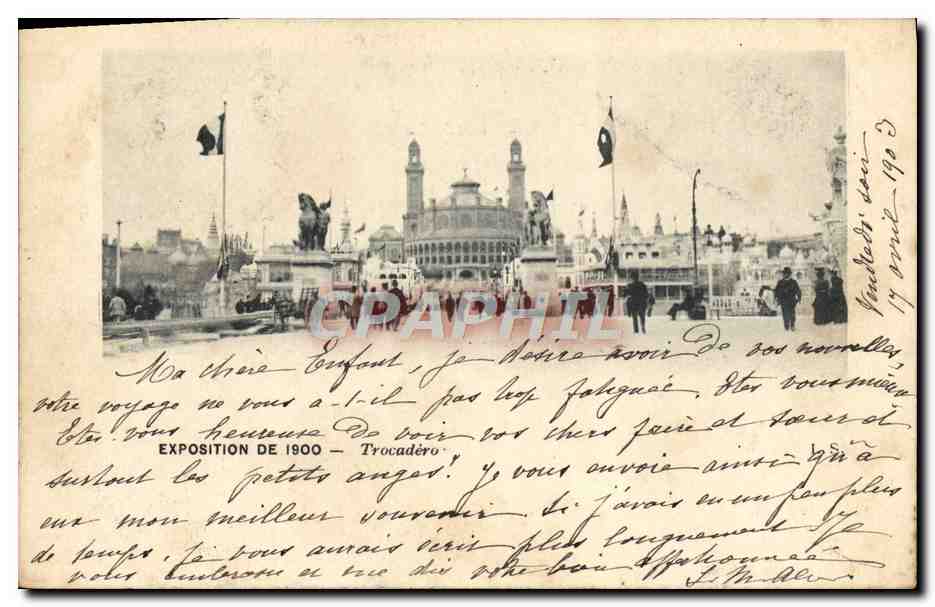 CPAPHIL
Vendredi soir
17 avril 1903
Ma chère Enfant, je désire avoir de vos nouvelles,
votre voyage ne vous a-t-il pas trop fatiguée. Etes vous mieux
Etes-vous heureuse de voir vos chers frère et sœur et
EXPOSITION DE 1900 — Trocadéro
surtout les petits anges? Je vous envoie ainsi qu'à
eux mon meilleur souvenir. Si j'avais eu un peu plus
de temps, je vous aurais écrit plus longuement. Je
vous embrasse et me dis votre bien affectionnée